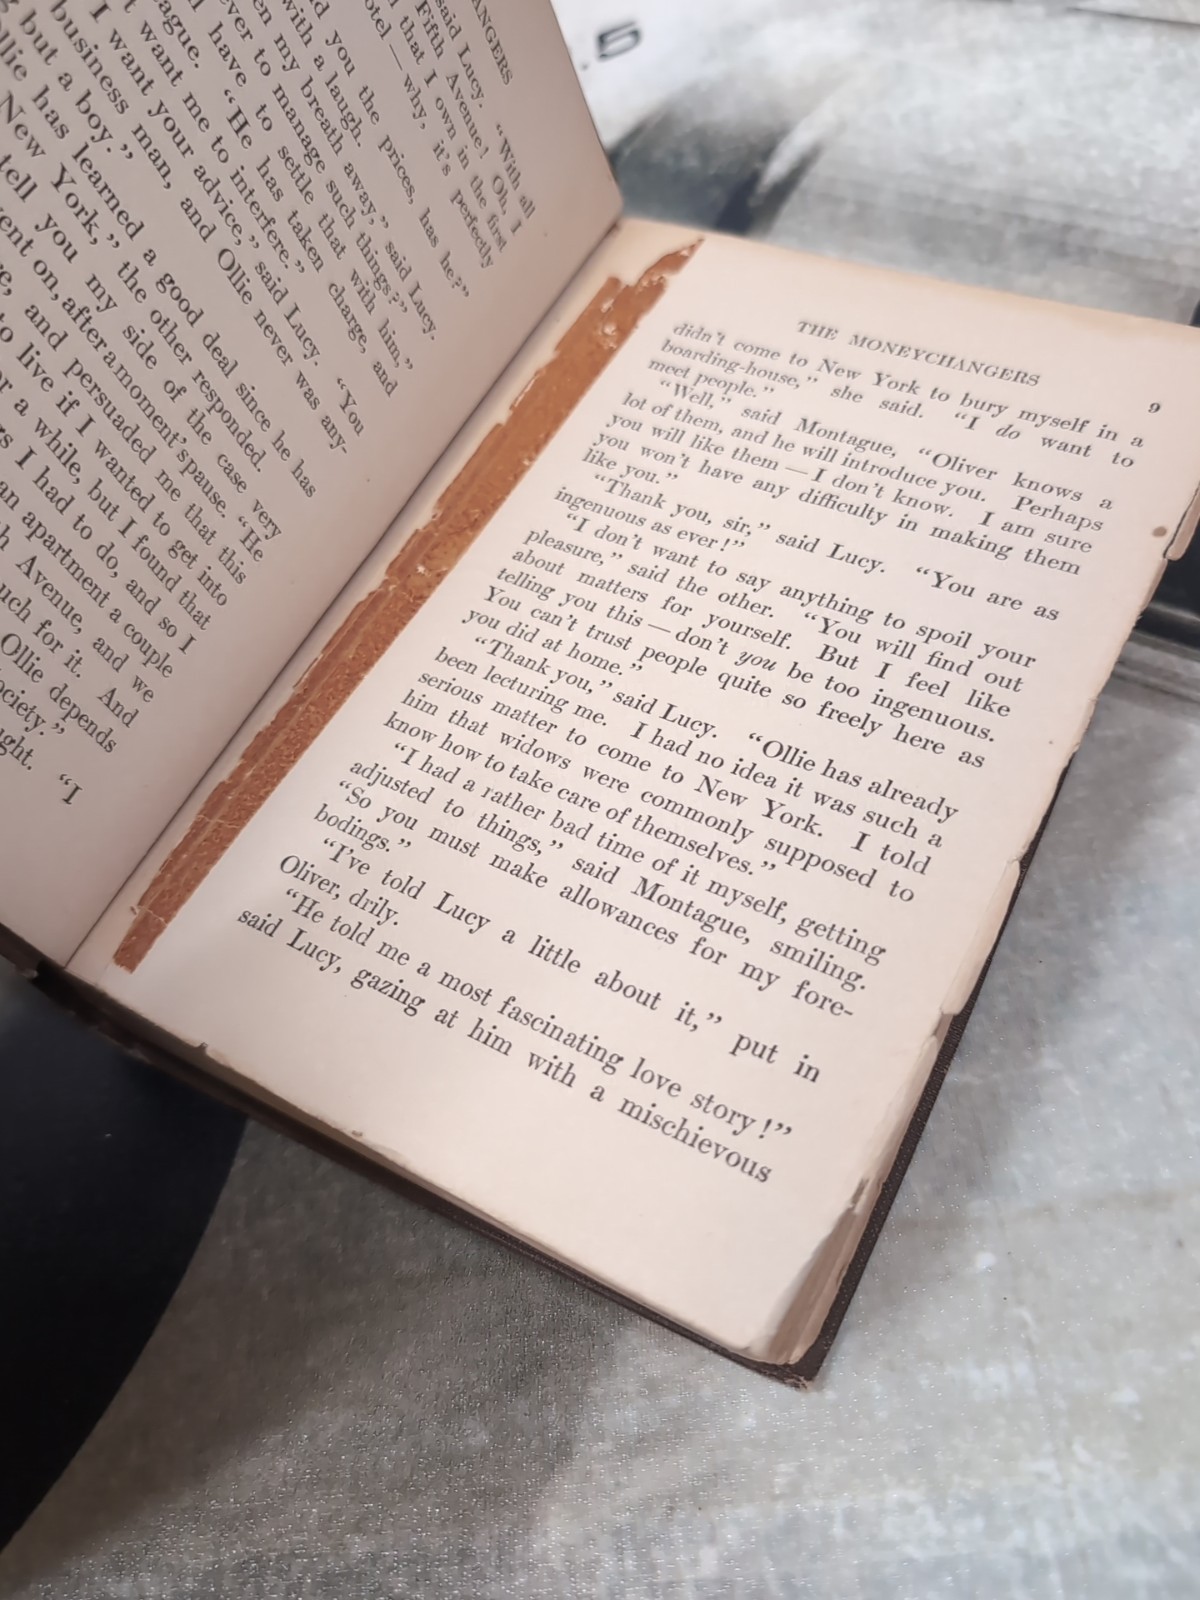 ANGERS
said Lucy. “With all
Fifth Avenue! Oh, I
that I own in the first
otel — why, it's perfectly
you the prices, has he?”
with a laugh.
en my breath away,” said Lucy.
ver to manage such things?”
have to settle that with him,”
ague. “He has taken charge, and
want me to interfere.”
I want your advice,” said Lucy. “You
business man, and Ollie never was any-
g but a boy.”
llie has learned a good deal since he has
New York,” the other responded.
tell you my side of the case very
ent on, after a moment's pause. “He
e, and persuaded me that this
to live if I wanted to get into
r a while, but I found that
gs I had to do, and so I
an apartment a couple
h Avenue, and we
uch for it. And
Ollie depends
ociety.”
ught. “I
THE MONEYCHANGERS 9
didn't come to New York to bury myself in a
boarding-house,” she said. “I do want to
meet people.”
“Well,” said Montague, “Oliver knows a
lot of them, and he will introduce you. Perhaps
you will like them — I don't know. I am sure
you won't have any difficulty in making them
like you.”
“Thank you, sir,” said Lucy. “You are as
ingenuous as ever!”
“I don't want to say anything to spoil your
pleasure,” said the other. “You will find out
about matters for yourself. But I feel like
telling you this — don't you be too ingenuous.
You can't trust people quite so freely here as
you did at home.”
“Thank you,” said Lucy. “Ollie has already
been lecturing me. I had no idea it was such a
serious matter to come to New York. I told
him that widows were commonly supposed to
know how to take care of themselves.”
“I had a rather bad time of it myself, getting
adjusted to things,” said Montague, smiling.
“So you must make allowances for my fore-
bodings.”
“I've told Lucy a little about it,” put in
Oliver, drily.
“He told me a most fascinating love story!”
said Lucy, gazing at him with a mischievous
.5